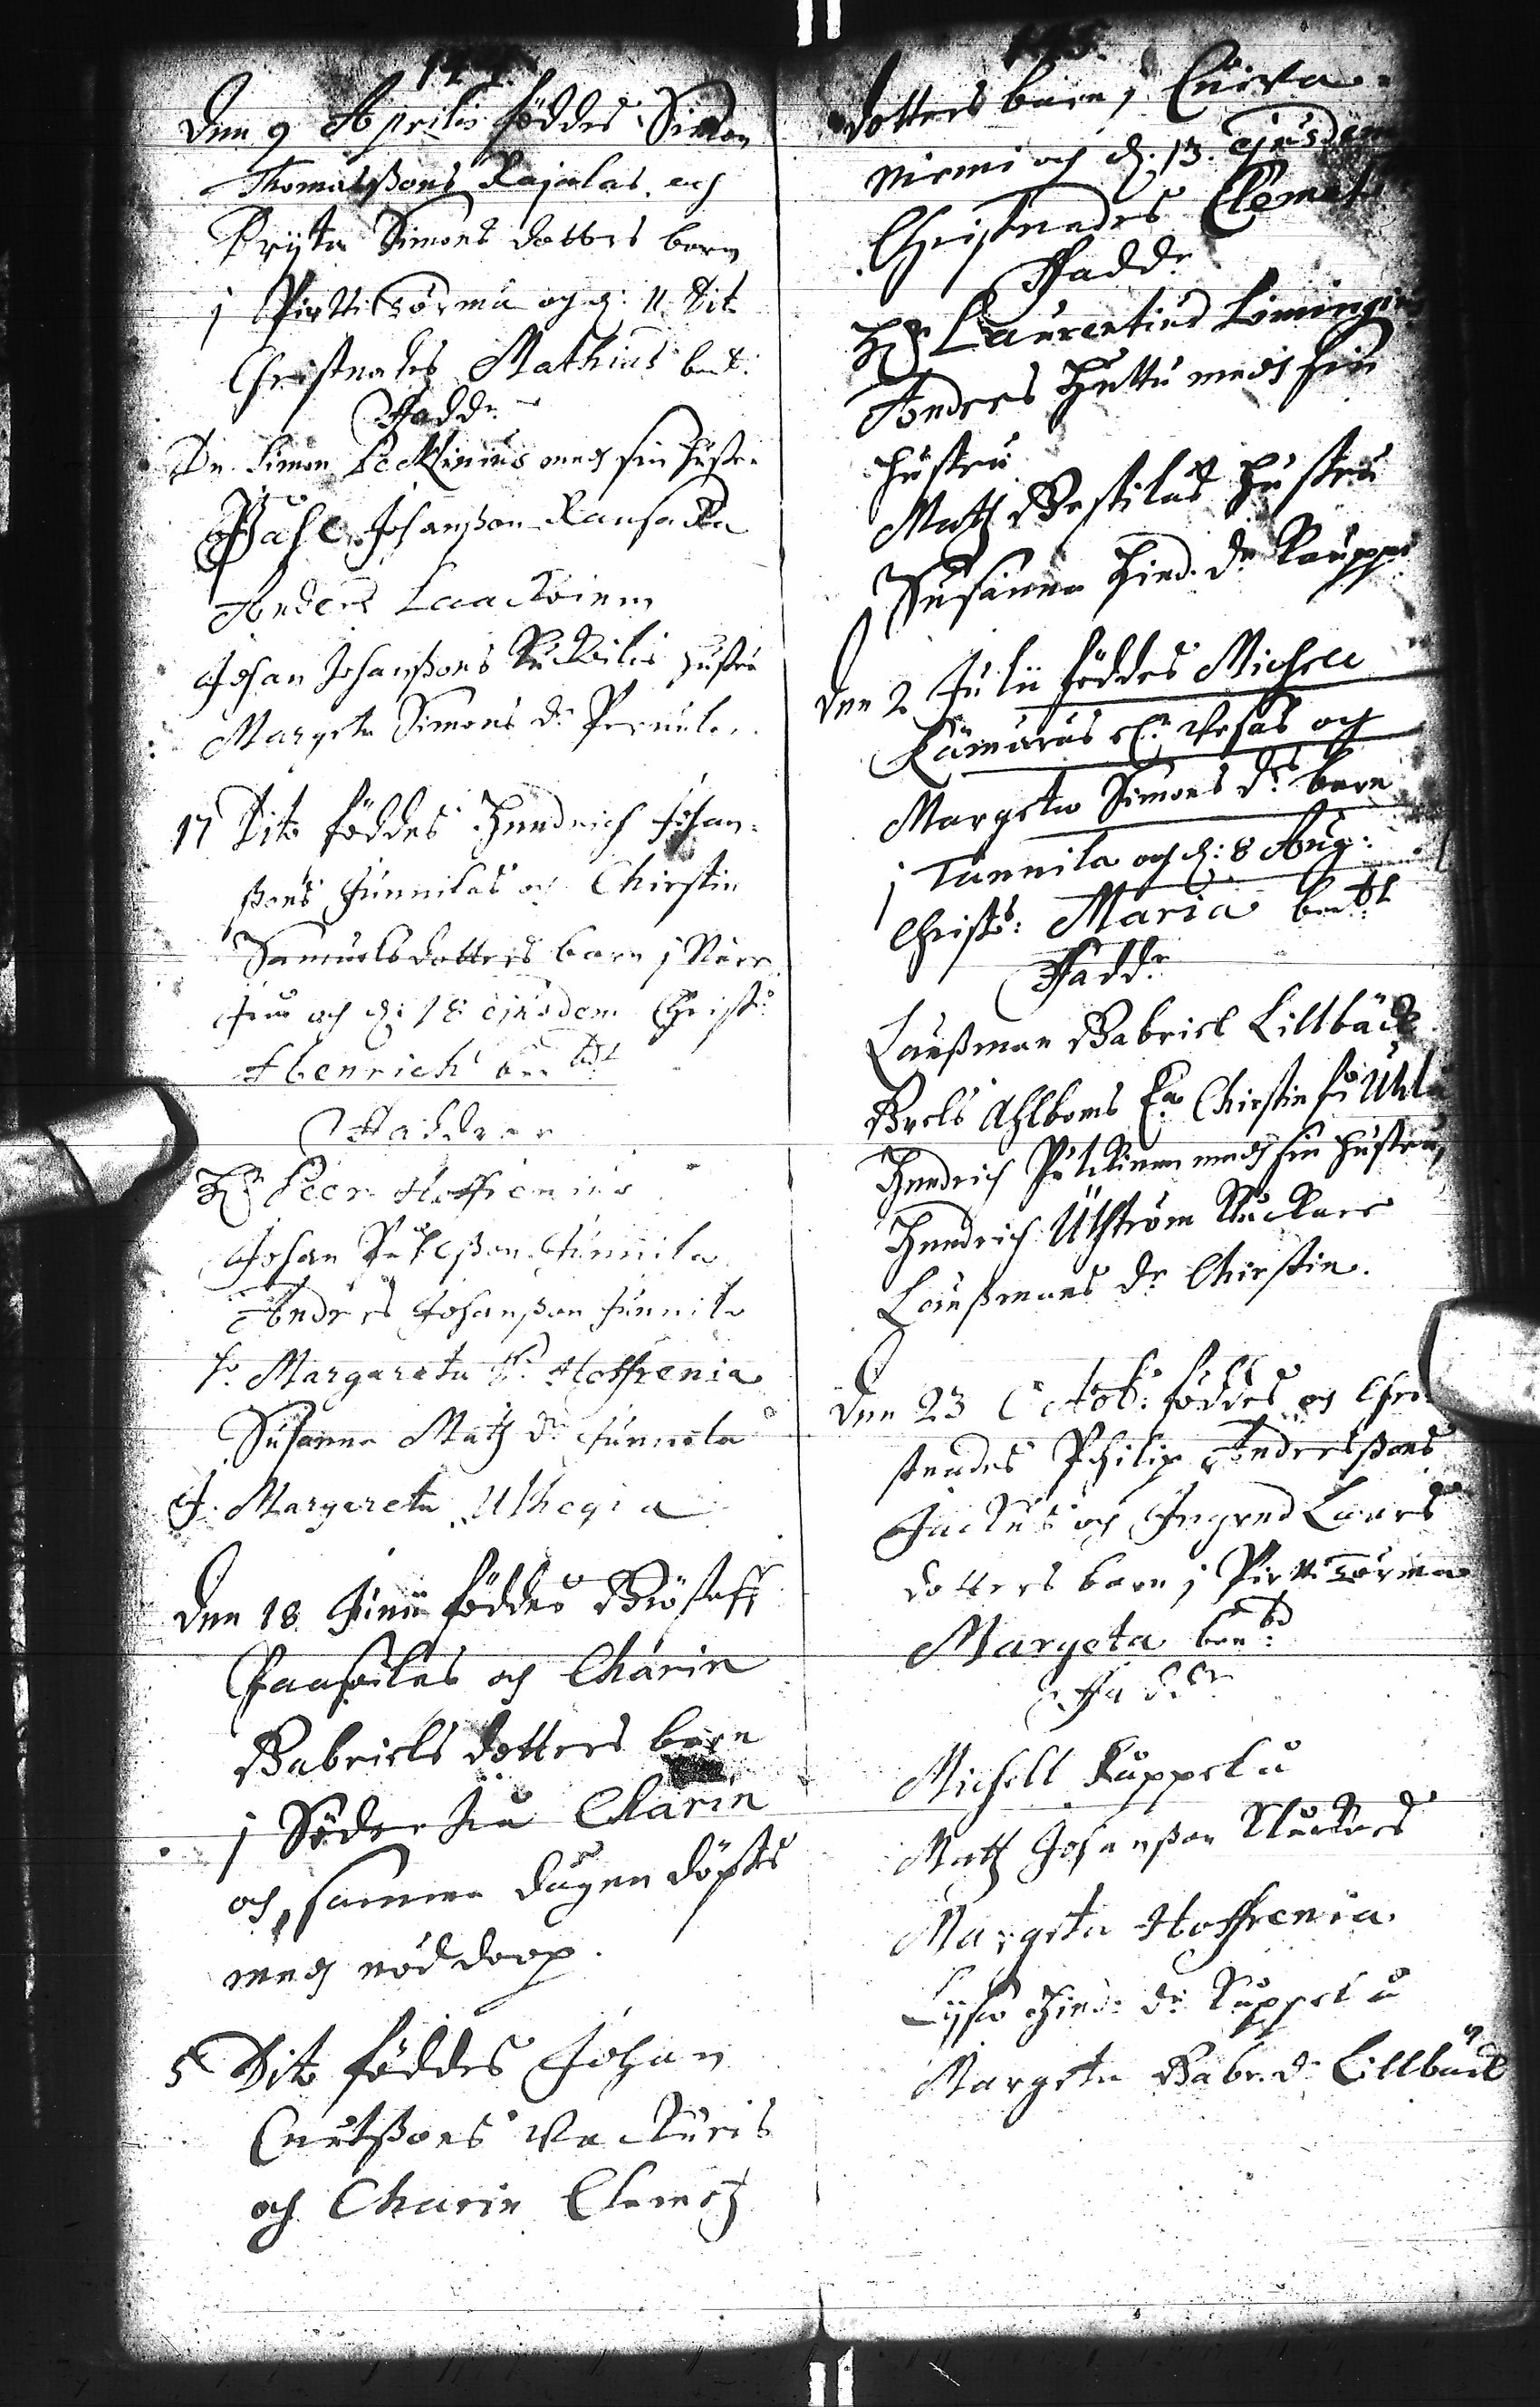 144
Den 9 Aprilis föddes Simon
Thomaßons Rajalas och
Brijta Simons dotters barn
j Pirttitörmä och d: 11 Dito
Christnades Mathias be:t
Fadd:r
Dn. Simon Pecklinius med sin hustru
Påhl Johanßon Ransacka
Anders Laackoinen
Johan Johanßons Kuckoilis hustru
Margeta Simons d:r
17 Dito föddes Hendrich Johan-
ßons Junnilas och Chirstin
Samuelsdotters barn j Norr
och d: 18 ejusdem Christ:
Henrich be:t
Faddrar
H:r Peer Hoffrenius
Johan Johanßon Junnila
Anders Johanßon Junnila
h. Margareta Hoffrenia
Susanna Matz d:r Junnola
J. Margareta Uthegia
Den 18 Junii föddes Giöstaff
Paasoilas och Charin
Gabriels dotters barn
j Söder Charin
och samma dagen döptes
med nöddoop.
5 Dito föddes Johan
Cnutßons Wackuris
och Charin Clemetz
145.
dotters barn j Curva-
niemi och d: 13. ejusdem
Christnades Clemet
Fadd:r
H:r Laurentius Limingius
Anders Huttu medh sin
hustru
Matz Bestilas hustru
Susanna Hind. d:r Kauppi
Den 2 Julii föddes Michell
Kämäräs och
Margeta Simons d:rs barn
j Tannila och d: 8 Aug:
Christ:s: Maria be:t
Fadd:r
Länßman Gabriel Lillbäck
Grels Ahlboms Chirstin
Hendrich Putkinen medh sin hustru
Hendrich Uthström Kluckare
Länßmans d:r Chirstin.
Den 23 Octob: föddes och Chri
stnades Philip Anderßons
Jackus och Ingred Lars
dotters barn j Pirttitörmä
Margeta be:d
Fadd:r
Michell Kuppelu
Matz Johanßon Kluckars
Margeta Hoffrenia.
Lijsa Hind: d:r Kuppelu
Margeta Gabr. d:r Lillbäck